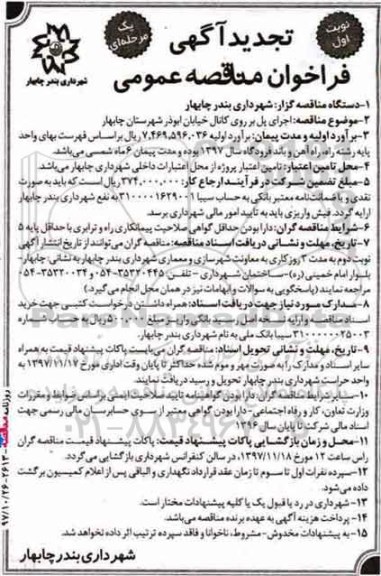 نوبت اول
تجدید آگهی
یک مرحله‌ای
فراخوان مناقصه عمومی
شهرداری بندر چابهار
۱-دستگاه مناقصه گزار: شهرداری بندر چابهار
۲-موضوع مناقصه: اجرای پل بر روی کانال خیابان ابوذر شهرستان چابهار
۳-برآورد اولیه و مدت پیمان: برآورد اولیه ۷,۴۶۹,۵۹۶,۰۳۶ ریال براساس فهرست بهای واحد
پایه رشته راه، راه آهن و باند فرودگاه سال ۱۳۹۷ بوده و مدت پیمان ۶ ماه شمسی می‌باشد.
۴-محل تامین اعتبار: تامین اعتبار پروژه از محل اعتبارات داخلی شهرداری چابهار می‌باشد.
۵-مبلغ تضمین شرکت در فرآیند ارجاع کار: ۳۷۴,۰۰۰,۰۰۰ ریال است که باید به صورت
نقدی و یا ضمانت‌نامه معتبر بانکی به حساب سیبا به نفع شهرداری بندر چابهار
ارایه گردد. فیش واریزی باید به تایید امور مالی شهرداری برسد.
۶-شرایط مناقصه گران: دارا بودن حداقل گواهی صلاحیت پیمانکاری راه و ترابری با حداقل پایه ۵
۷-تاریخ، مهلت و نشانی دریافت اسناد مناقصه: مناقصه گران می‌توانند از تاریخ انتشار آگهی
نوبت دوم به مدت ۳ روز کاری به معاونت شهرسازی و معماری شهرداری بندر چابهار به نشانی: چابهار-
بلوار امام خمینی (ره)- ساختمان شهرداری - تلفن: ۳۵۳۲۰۴۴۵-۰۵۴ و ۳۵۳۳۰۰۳۴-۰۵۴
مراجعه نمایند (پاسخگویی به سوالات و ابهامات نیز در همان محل انجام می‌گیرد.)
۸-مدارک مورد نیاز جهت دریافت اسناد: همراه داشتن درخواست کتبی جهت خرید
اسناد مناقصه و ارایه نسخه اصل رسید بانکی واریز مبلغ ۵۰۰,۰۰۰ ریال به حساب شماره
سیبا بانک ملی به نام شهرداری بندر چابهار.
۹-تاریخ، مهلت و نشانی تحویل اسناد: مناقصه گران می‌بایست پاکات پیشنهاد قیمت به همراه
سایر اسناد و مدارک را به صورت مهر و موم شده حداکثر تا پایان وقت اداری مورخ ۱۳۹۷/۱۱/۱۷ به
واحد حراست شهرداری بندر چابهار تحویل و رسید دریافت نمایند.
۱۰-سایر شرایط مناقصه گران: دارا بودن گواهینامه تایید صلاحیت ایمنی براساس ضوابط و مقررات
وزارت تعاون، کار و رفاه اجتماعی - دارا بودن گواهی معتبر از سوی حسابرسان مالی رسمی جهت
اسناد مالی شرکت تا پایان سال ۱۳۹۶
۱۱-محل و زمان بازگشایی پاکات پیشنهاد قیمت: پاکات پیشنهاد قیمت مناقصه گران
راس ساعت ۱۲ مورخ ۱۳۹۷/۱۱/۱۸ در سالن کنفرانس شهرداری بازگشایی می‌گردد.
۱۲-سپرده نفرات اول تا سوم تا زمان عقد قرارداد نگهداری و الباقی پس از اعلام کمیسیون برگشت
داده می‌شود.
۱۳-شهرداری در رد یا قبول یک یا کلیه پیشنهادات مختار است.
۱۴-پرداخت هزینه آگهی به عهده برنده مناقصه می‌باشد.
۱۵-به پیشنهادات مخدوش، مشروط، ناخوانا و فاقد سپرده ترتیب اثر داده نخواهد شد.
شهرداری بندر چابهار
روزنامه مناقصه ۲۶۱۳-۹۷/۱۰/۲۶